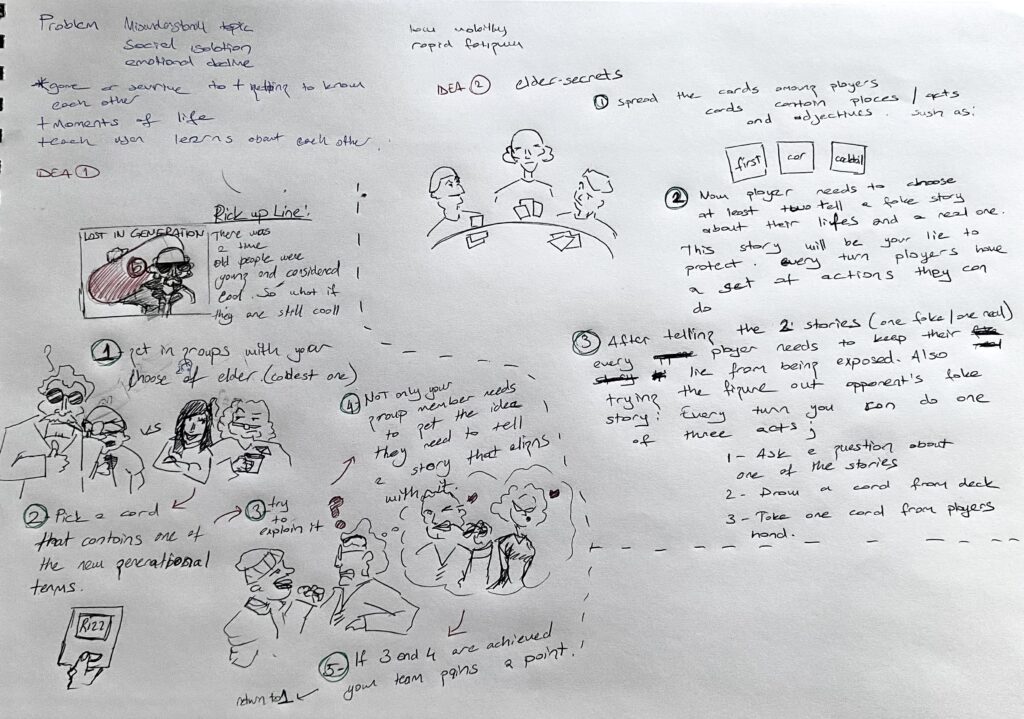 Problem Misunderstand topic
social isolation
emotional decline
low mobility
rapid fatigue
* game or service to + getting to know
each other
+ Moments of life
+ each user learns about each other.
IDEA 1
Pick up Line:
LOST IN GENERATION
There was
a time
old people were
young and considered
cool. So what if
they are still cool!
1- get in groups with your
choose of elder. (coolest one)
VS
2- Pick a card
that contains one of
the new generational
terms.
Rizz
3- try
to
explain it
4- Not only your
group member needs
to get the idea
they need to tell
a story that aligns
with it.
5- If 3 and 4 are achieved
your team gains a point.
return to 1
IDEA 2 elder-secrets
1 spread the cards among players
cards contain places / acts
and adjectives. such as:
first
car
cocktail
2 Now player needs to choose
at least two tell a fake story
about their lifes and a real one.
This story will be your lie to
protect. every turn players have
a set of actions they can
do
3 After telling the 2 stories (one fake / one real)
every player needs to keep their
lie from being exposed. Also
trying the figure out opponent's fake
story! Every turn you can do one
of three acts;
1- Ask a question about
one of the stories
2- Draw a card from deck
3- Take one card from players
hand.